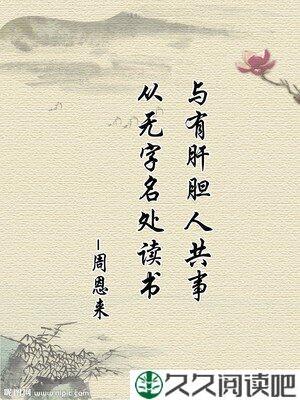 与有肝胆人共事
从无字名处读书
—周恩来
昵图网 www.nipic.com
久久阅读吧